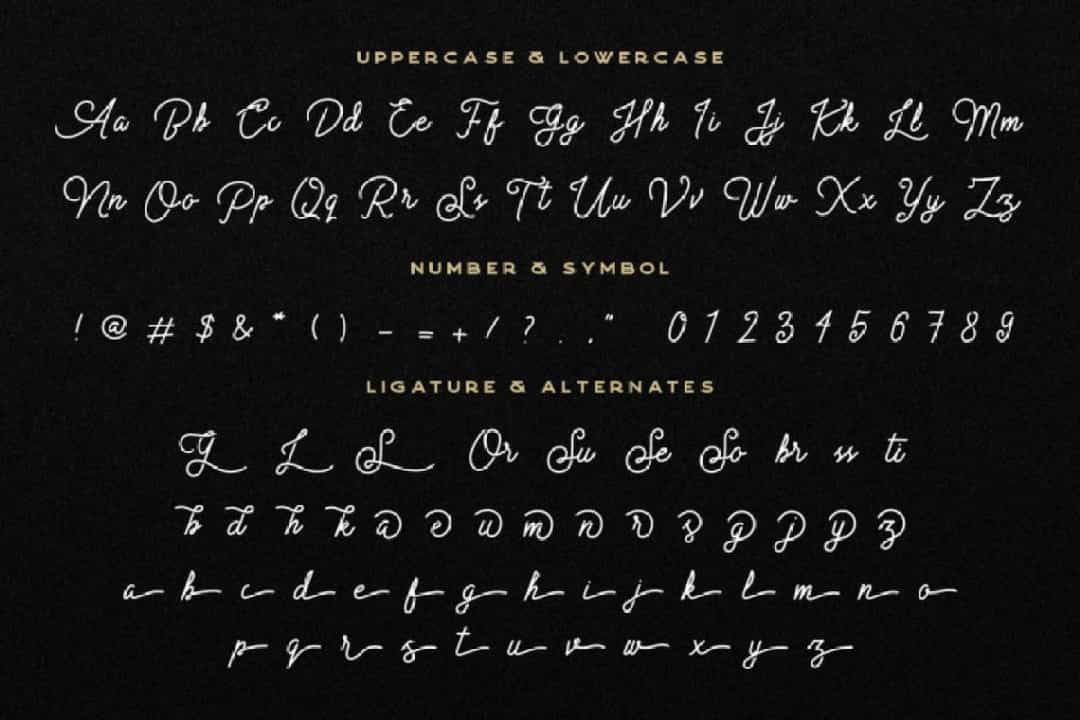 UPPERCASE & LOWERCASE
Aa Bb Cc Dd Ee Ff Gg Hh Ii Jj Kk Ll Mm
Nn Oo Pp Qq Rr Ss Tt Uu Vv Ww Xx Yy Zz
NUMBER & SYMBOL
! @ # $ & * ( ) - = + / ? . , " 0 1 2 3 4 5 6 7 8 9
LIGATURE & ALTERNATES
G L S Or Su Se So br ss ti
b d h k a e u m n r s g j y z
a b c d e f g h i j k l m n o
p q r s t u v w x y z